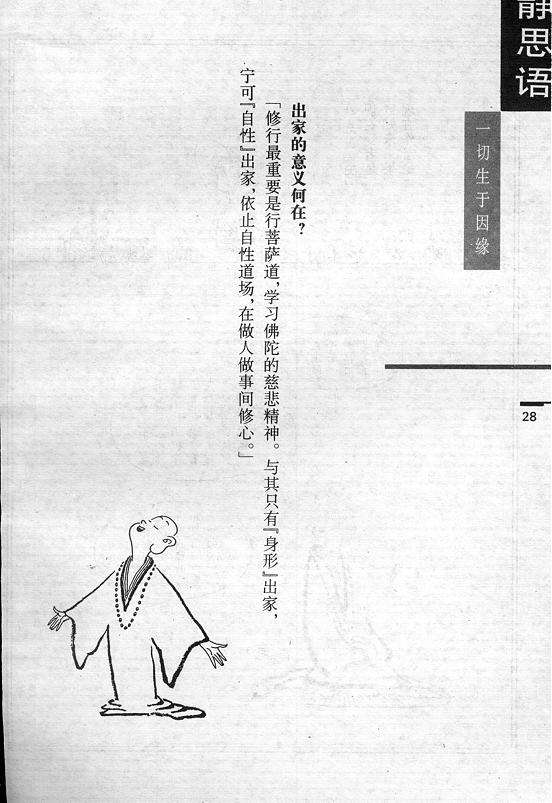 静思语
一切生于因缘
28
出家的意义何在？
「修行最重要是行菩萨道，学习佛陀的慈悲精神。与其只有『身形』出家，
宁可『自性』出家，依止自性道场，在做人做事间修心。」